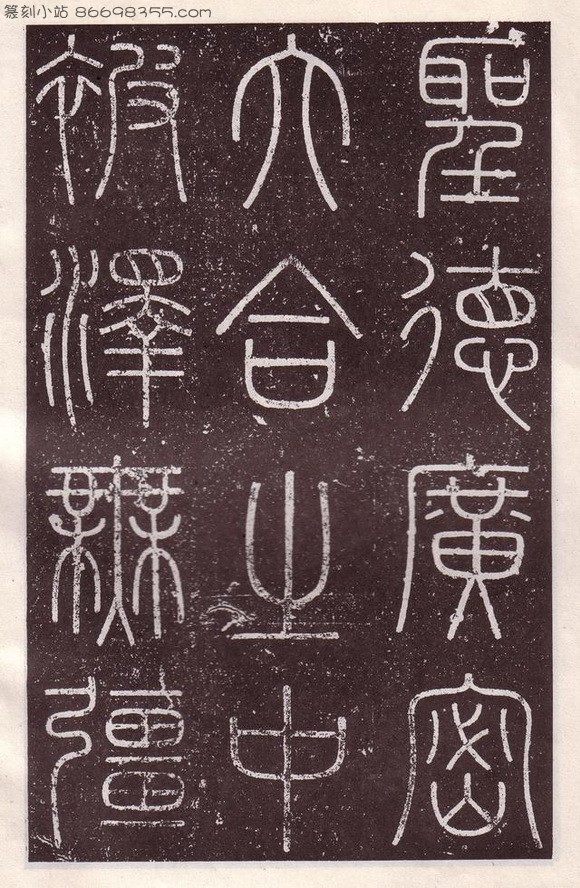 篆刻小站 86698355.com
聖德廣密
六合之中
被澤無彊